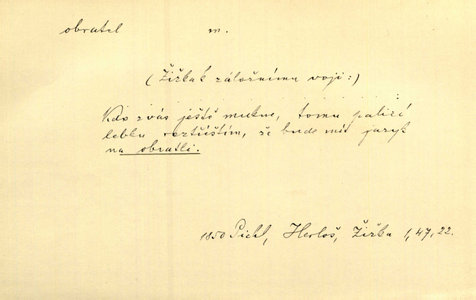 obratel m.
(Žižka k záložnímu voji:)
Kdo z vás ještě mukne, tomu palicí
lebku roztříštím, že bude mít jazyk
na obratli.
1850 Pichl, Herloš, Žižka 1,47,22.